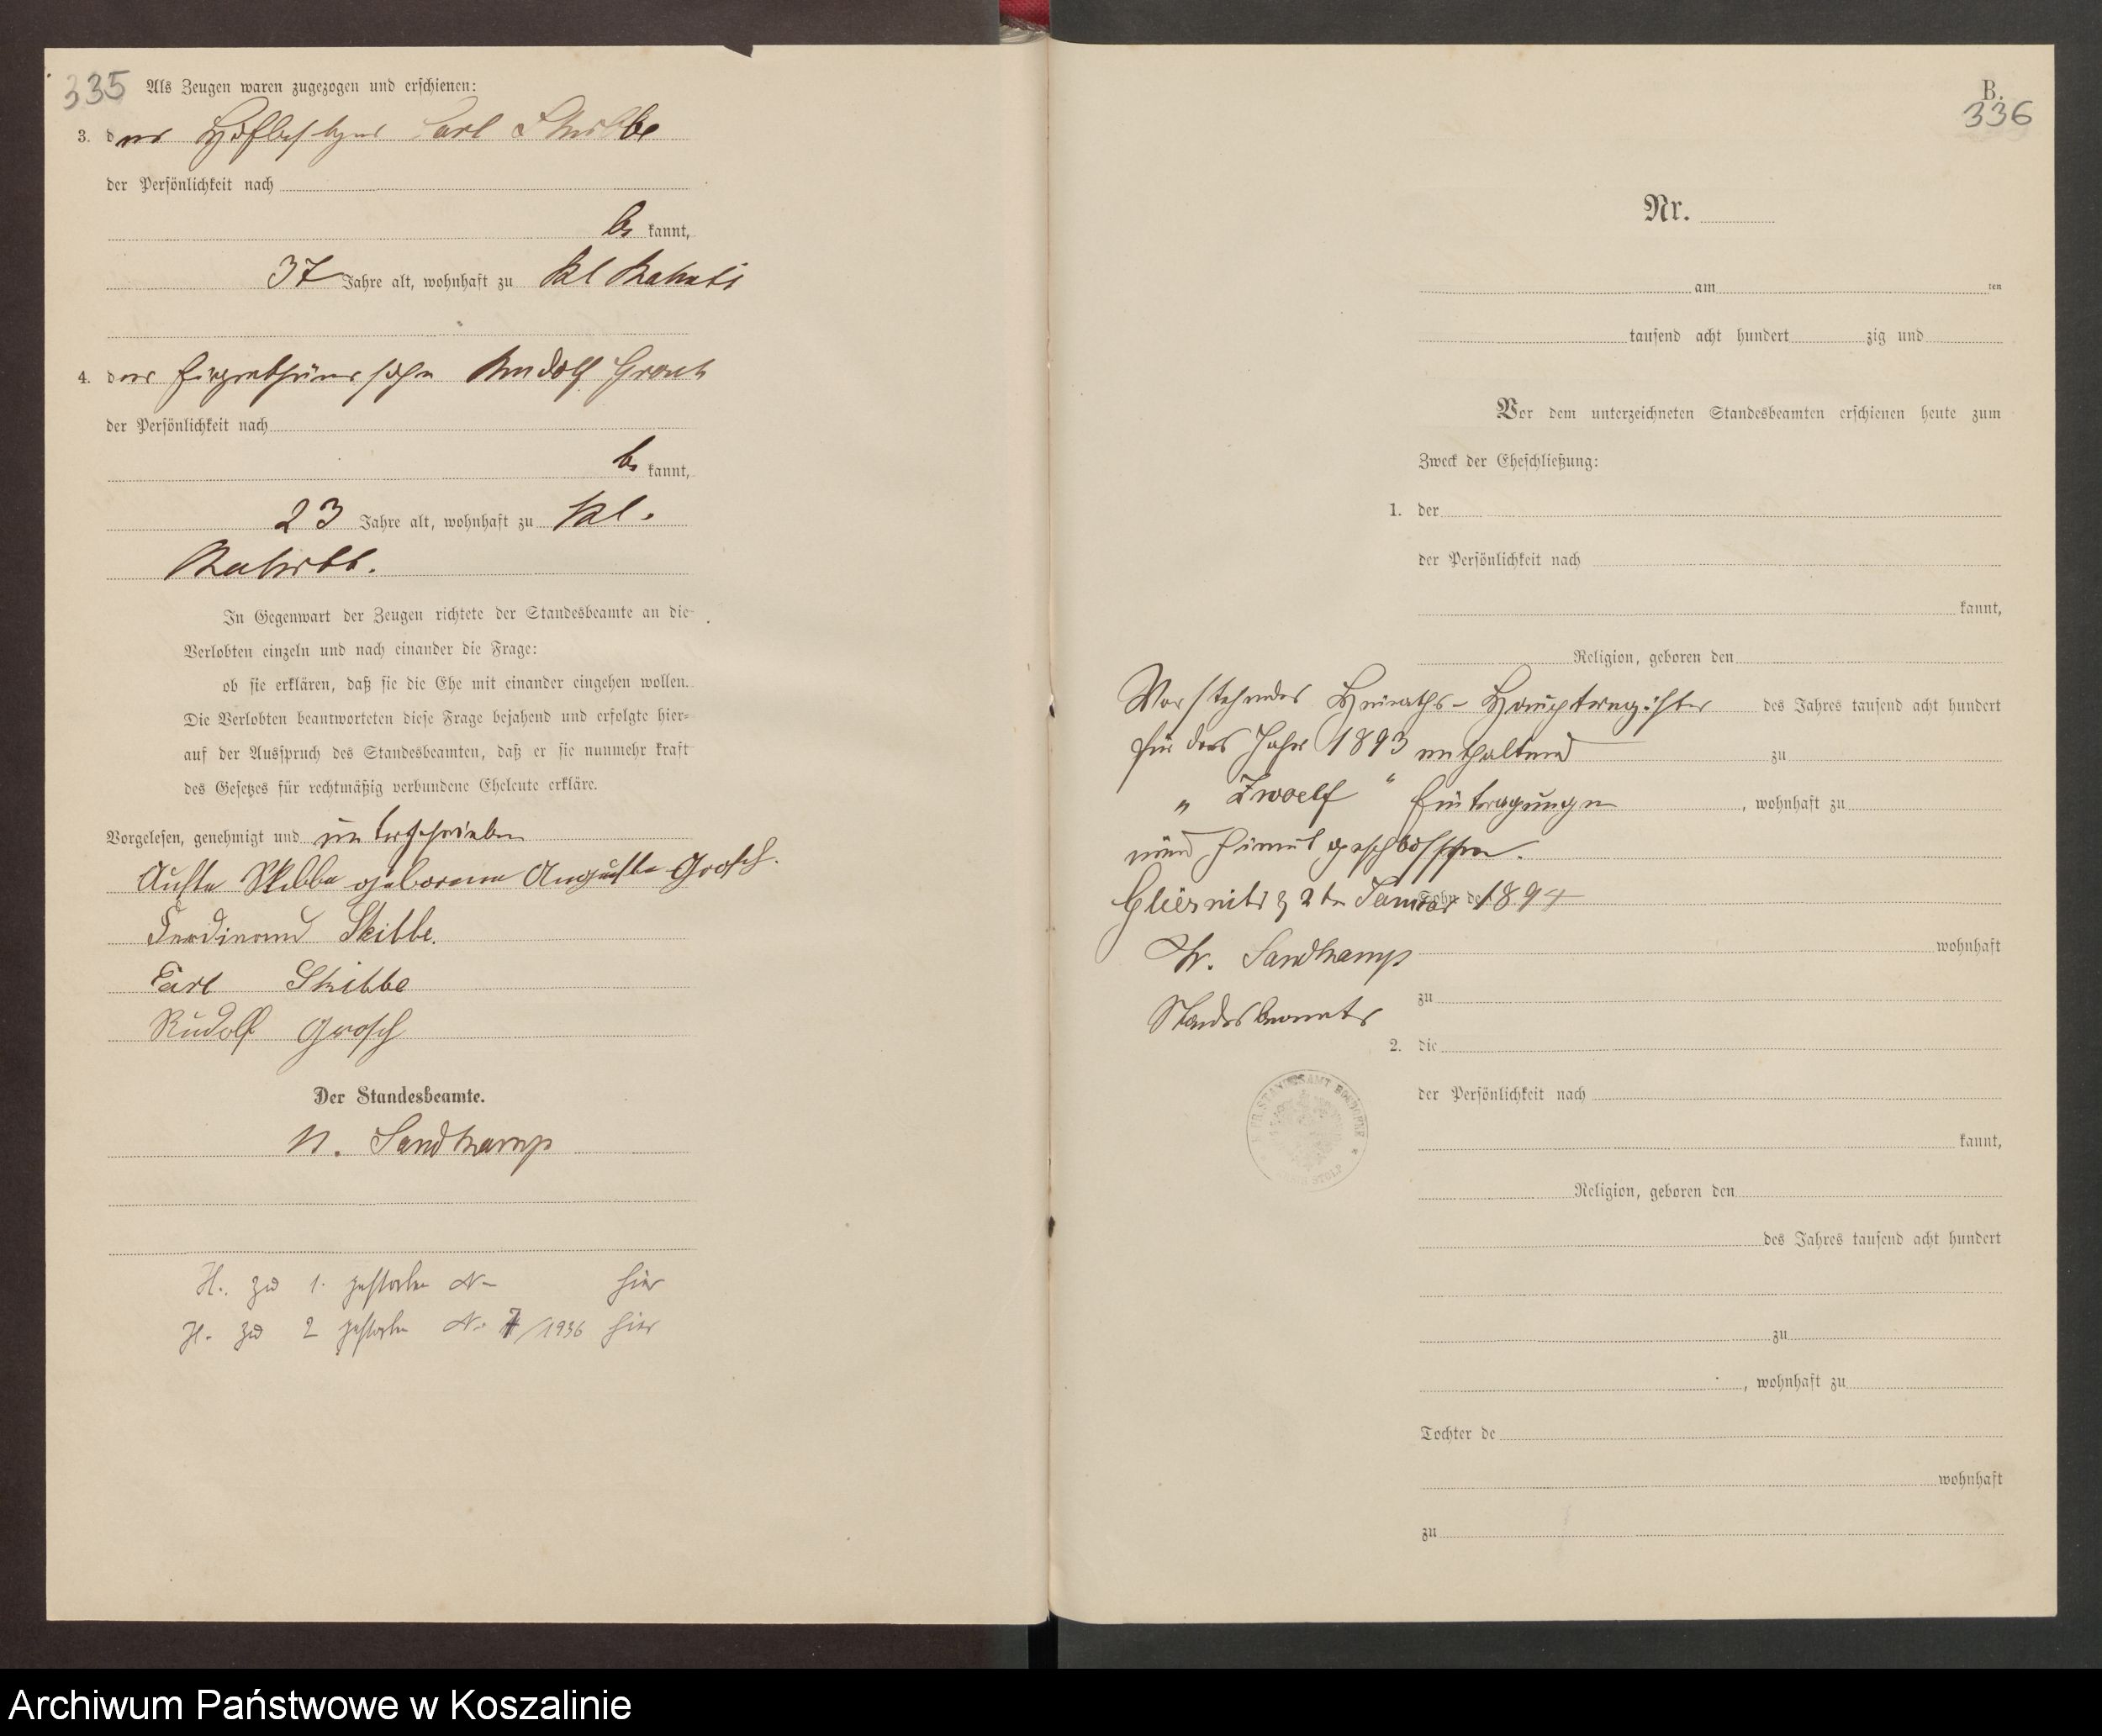 335
Als Zeugen waren zugezogen und erschienen:
3. der Hofbesitzer Carl Skibbe
der Persönlichkeit nach
be kannt,
37 Jahre alt, wohnhaft zu Kl
4. der Eigenthümersohn Rudolf
der Persönlichkeit nach
be kannt,
23 Jahre alt, wohnhaft zu Kl.
In Gegenwart der Zeugen richtete der Standesbeamte an die
Verlobten einzeln und nach einander die Frage:
ob sie erklären, daß sie die Ehe mit einander eingehen wollen.
Die Verlobten beantworteten diese Frage bejahend und erfolgte hier-
auf der Ausspruch des Standesbeamten, daß er sie nunmehr kraft
des Gesetzes für rechtmäßig verbundene Eheleute erkläre.
Vorgelesen, genehmigt und unterschrieben
Skibbe geborene Auguste Grosch.
Ferdinand Skibbe.
Carl Skibbe
Rudolf Grosch
Der Standesbeamte.
Sandkamp
H. zu 1. gestorben No hier
H. zu 2 gestorben No 7/1936 hier
B.
336
Nr.
am ten
tausend acht hundert zig und
Vor dem unterzeichneten Standesbeamten erschienen heute zum
Zweck der Eheschließung:
1. der
der Persönlichkeit nach
kannt,
Religion, geboren den
Vorstehendes Heiraths-Hauptregister
des Jahres tausend acht hundert
für das Jahr 1893 enthaltend
zu
„ Zwoelf “ Eintragungen
, wohnhaft zu
wird hiermit geschlossen.
Sohn de
Gliesnitz d 2ten Januar 1894
Sandkamp
wohnhaft
Standesbeamter
zu
2. die
der Persönlichkeit nach
kannt,
Religion, geboren den
des Jahres tausend acht hundert
zu
, wohnhaft zu
Tochter de
wohnhaft
zu
Archiwum Państwowe w Koszalinie